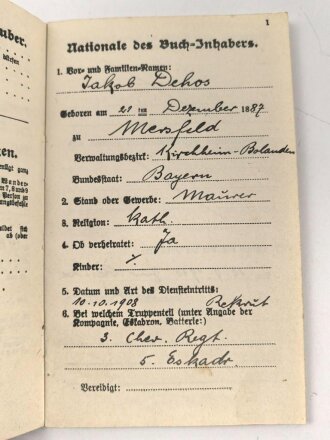 1
Nationale des Buch-Inhabers.
1. Vor- und Familien-Namen:
Jakob Dehos
Geboren am 21 ten Dezember 1887
zu Morsfeld
Verwaltungsbezirk: Kirchheim-Bolanden
Bundesstaat: Bayern
2. Stand oder Gewerbe: Maurer
3. Religion: kath.
4. Ob verheiratet: Ja
Kinder: %
5. Datum und Art des Diensteintritts:
10.10.1908 Rekrut
6. Bei welchem Truppenteil (unter Angabe der
Kompagnie, Eskadron, Batterie:)
3. Chev. Regt.
5. Eskadr.
Vereidigt: